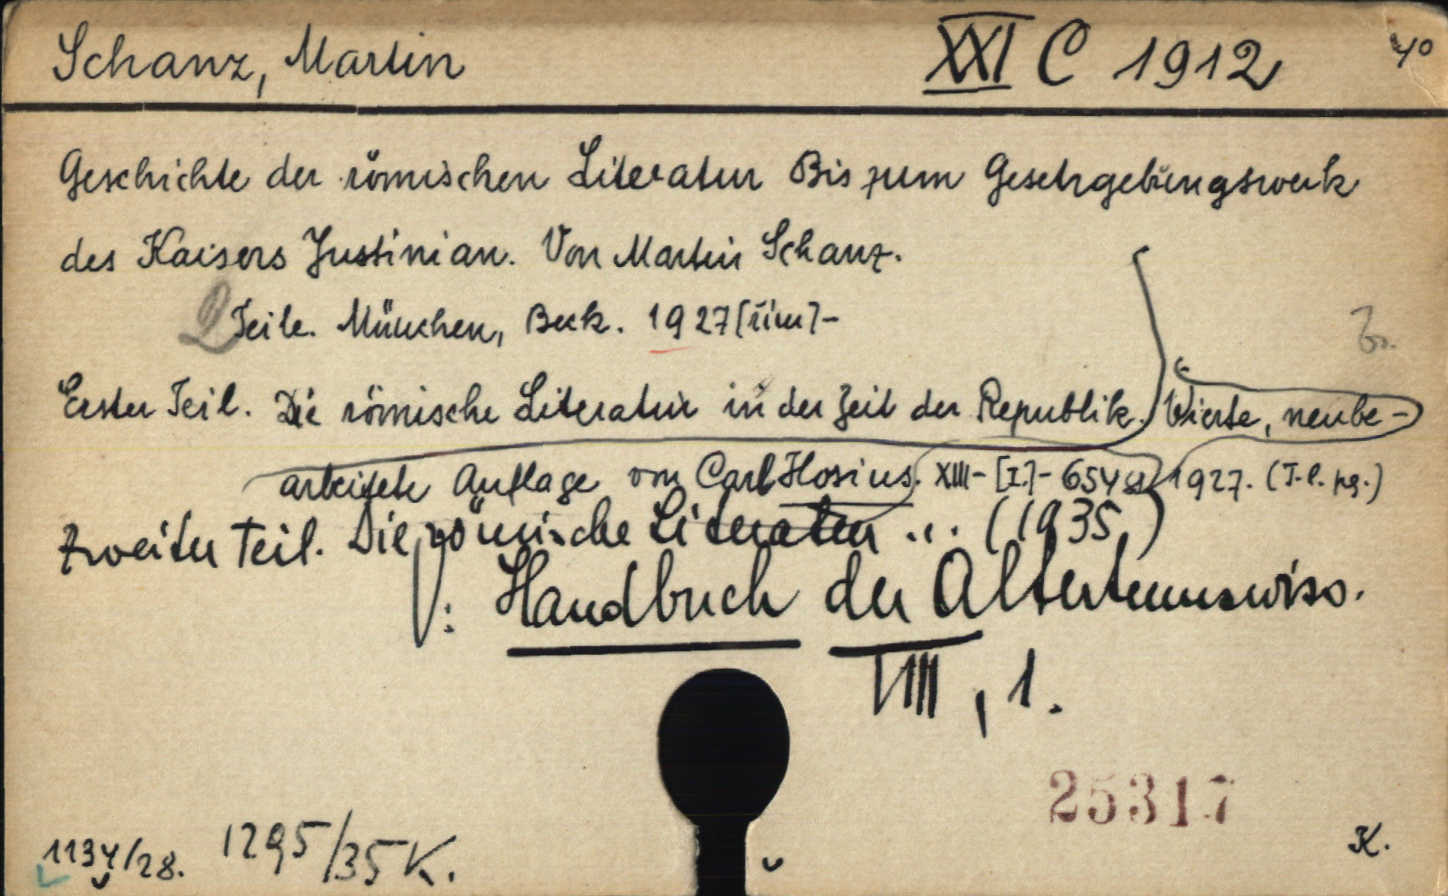 Schanz, Martin XXI C 1912 4°
Geschichte der römischen Literatur Bis zum Gesetzgebungswerk
des Kaisers Justinian. Von Martin Schanz.
2 Teile. München, Beck. 1927 [üim] -
Erster Teil. Die römische Literatur in der Zeit der Republik. Vierte, neube-
arbeitete Auflage von Carl Hosius. XIII - [I.] - 654 S. 1927. (T.l. pg.)
Zweiter Teil. Die römische Literatur ... (1935)
V: Handbuch der Altertumswiss.
VIII, 1.
25317
1134/28. 1295/35 K. K.